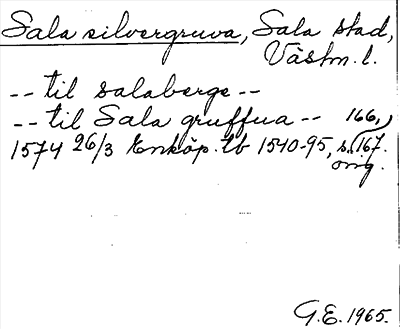 Sala silvergruva, Sala stad,
Västm. l.
-- til salaberge --
-- til Sala gruffua -- 166,
1574 26/3 Enköp. tb 1540-95, s. 167.
orig.
G.E. 1965.